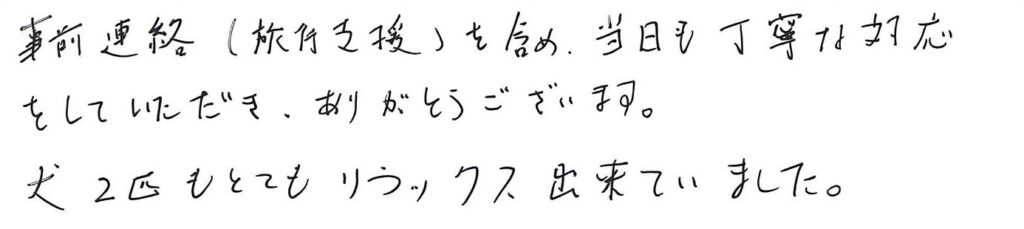 事前連絡(旅行支援)を含め、当日も丁寧な対応
をしていただき、ありがとうございます。
犬2匹もとてもリラックス出来ていました。